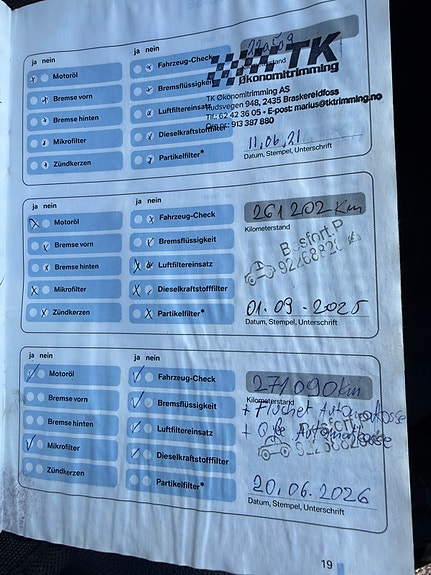 ja nein
Motoröl
Bremse vorn
Bremse hinten
Mikrofilter
Zündkerzen
Fahrzeug-Check
Bremsflüssigkeit
Luftfiltereinsatz
Dieselkraftstofffilter
Partikelfilter*
TK
Økonomitrimming
TK Økonomitrimming AS
Rudsvegen 948, 2435 Braskereidfoss
Tlf: 62 42 36 05 • E-post: marius@tktrimming.no
Org.nr.: 913 387 880
11.06.21
Datum, Stempel, Unterschrift
ja nein
Motoröl
Bremse vorn
Bremse hinten
Mikrofilter
Zündkerzen
Fahrzeug-Check
Bremsflüssigkeit
Luftfiltereinsatz
Dieselkraftstofffilter
Partikelfilter*
261 202 Km
Kilometerstand
Besfort.P
01.09-2025
Datum, Stempel, Unterschrift
ja nein
Motoröl
Bremse vorn
Bremse hinten
Mikrofilter
Zündkerzen
Fahrzeug-Check
Bremsflüssigkeit
Luftfiltereinsatz
Dieselkraftstofffilter
Partikelfilter*
271 090 km
Kilometerstand
20.06.2026
Datum, Stempel, Unterschrift
19